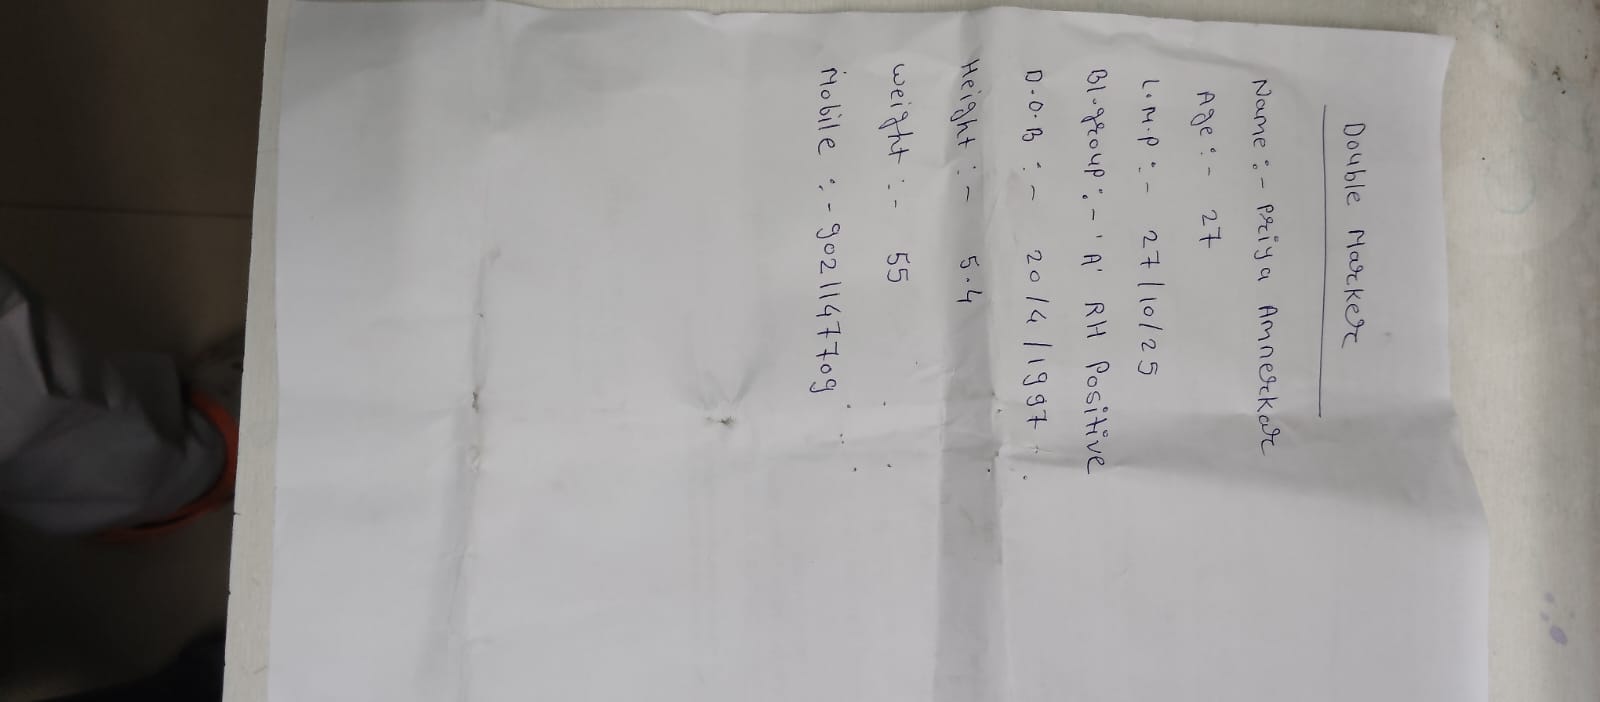 Double Marker
Name :- Priya Amnerkar
Age :- 27
L.M.P :- 27/10/25
Bl.group :- 'A' RH Positive
D.O.B :- 20/4/1997
Height :- 5.4
Weight :- 55
Mobile :- 9021147709